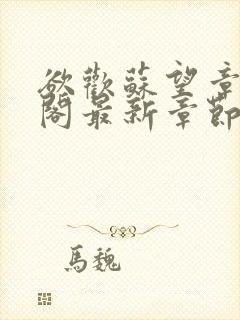 欲歡蘇望章
閣最新章節
馬魏